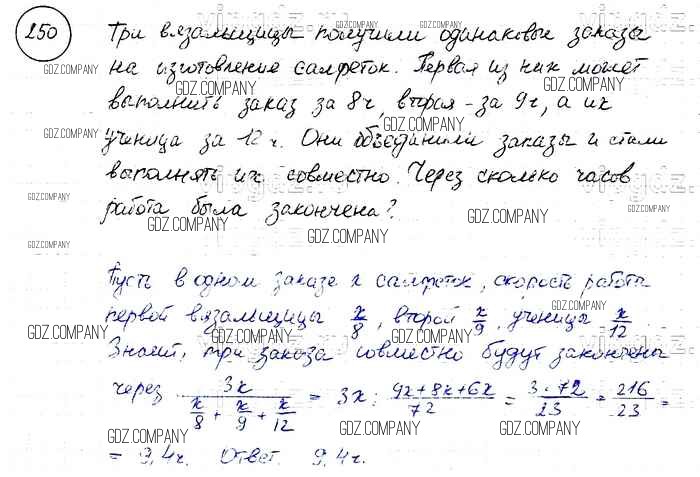 250 Три вязальщицы получили одинаковые заказы
на изготовление салфеток. Первая из них может
выполнить заказ за 8 ч, вторая - за 9 ч, а их
ученица за 12 ч. Они объединили заказы и стали
выполнять их совместно. Через сколько часов
работа была закончена?
Пусть в одном заказе x салфеток, скорость работы
первой вязальщицы x/8, второй x/9, ученицы x/12
Значит, три заказа совместно будут закончены
через 3x/(x/8 + x/9 + x/12) = 3x : (9x+8x+6x)/72 = 3·72/23 = 216/23 =
= 9,4 ч. Ответ 9,4 ч.